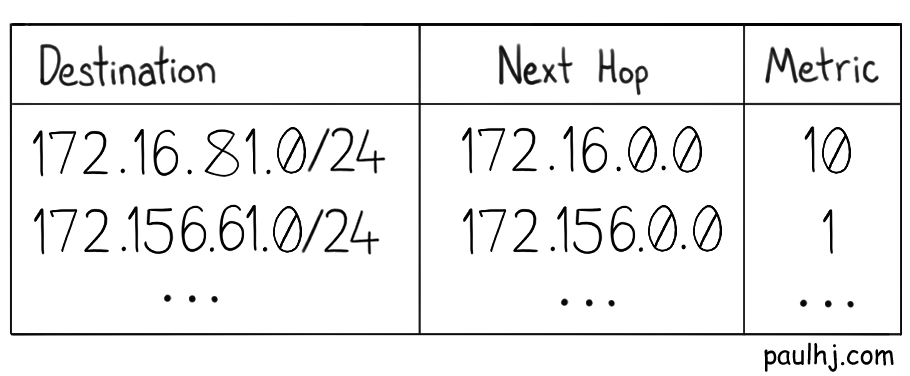 Destination Next Hop Metric
172.16.81.0/24 172.16.0.0 10
172.156.61.0/24 172.156.0.0 1
... ... ...
paulhj.com